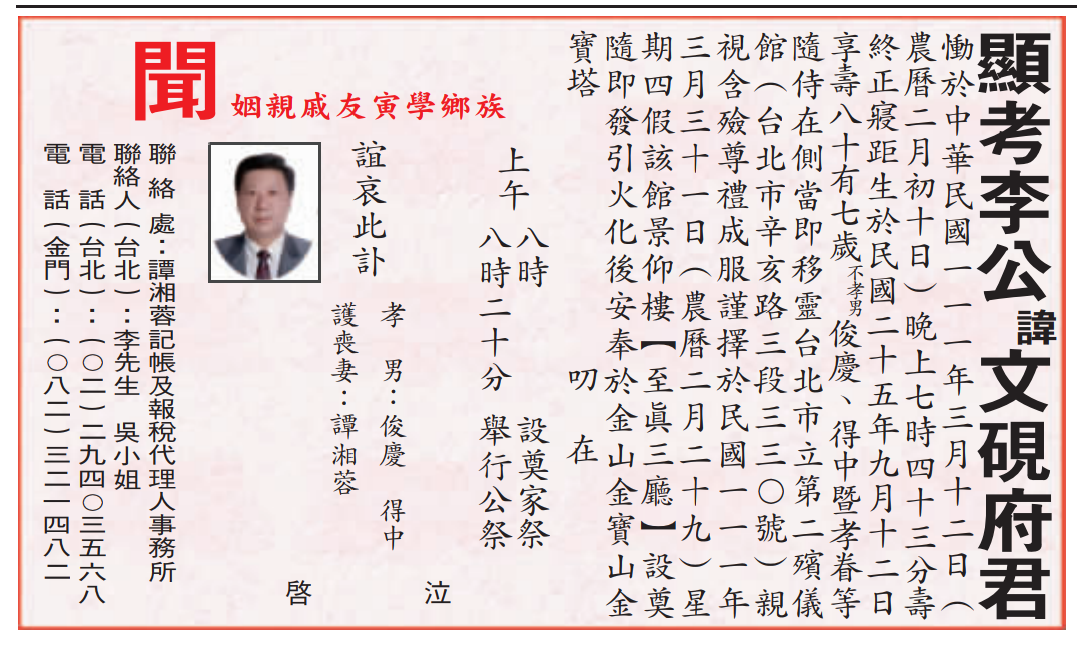 顯考李公諱文硯府君
慟於中華民國一一一年三月十二日（
農曆二月初十日）晚上七時四十三分壽
終正寢距生於民國二十五年九月十二日
享壽八十有七歲不孝男俊慶、得中暨孝眷等
隨侍在側當即移靈台北市立第二殯儀
館（台北市辛亥路三段三三〇號）親
視含殮尊禮成服謹擇於民國一一一年
三月三十一日（農曆二月二十九）星
期四假該館景仰樓【至真三廳】設奠
隨即發引火化後安奉於金山金寶山金
寶塔　叨在
聞
族鄉學寅友戚親姻
上午　八時　設奠家祭
八時二十分　舉行公祭
誼哀此訃
孝　男：俊慶　得中
護喪妻：譚湘蓉
泣　啓
聯絡處：譚湘蓉記帳及報稅代理人事務所
聯絡人（台北）：李先生　吳小姐
電　話（台北）：（〇二）二九四〇三五六八
電　話（金門）：（〇八二）三二一四八二